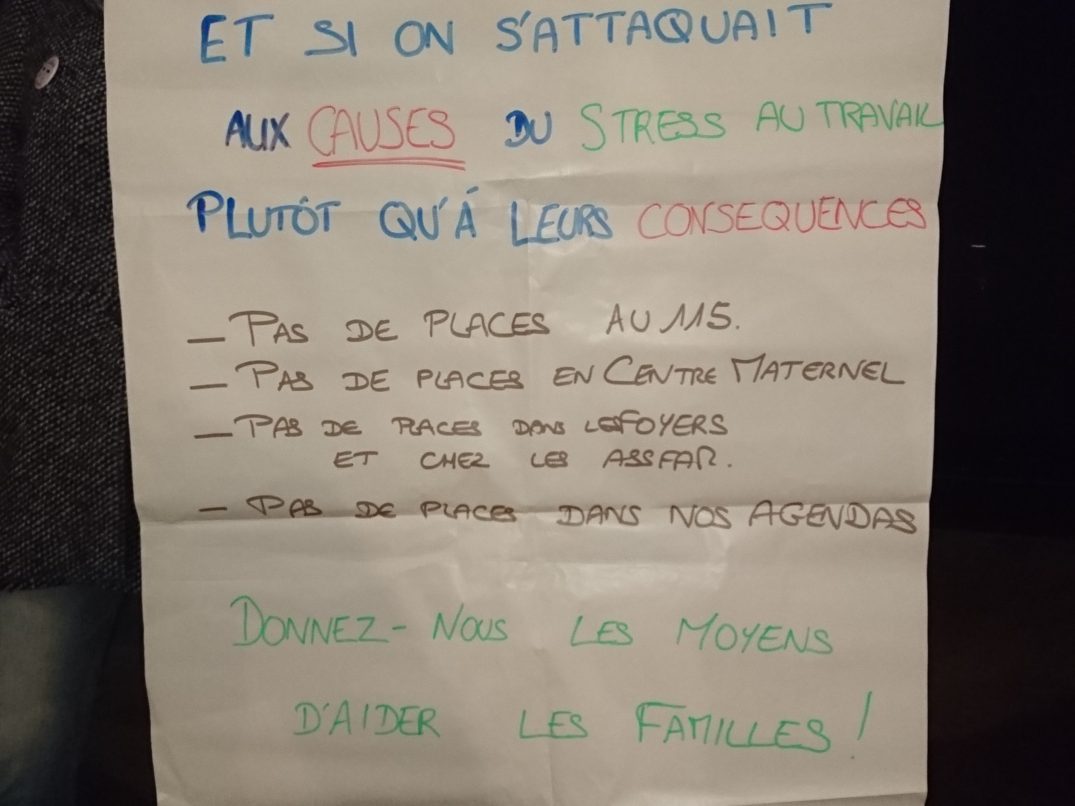 ET SI ON S'ATTAQUAIT
AUX CAUSES DU STRESS AU TRAVAIL
PLUTÔT QU'À LEURS CONSEQUENCES
– PAS DE PLACES AU 115.
– PAS DE PLACES EN CENTRE MATERNEL
– PAS DE PLACES DANS LES FOYERS
ET CHEZ LES ASSFAM.
– PAS DE PLACES DANS NOS AGENDAS
DONNEZ-NOUS LES MOYENS
D'AIDER LES FAMILLES !